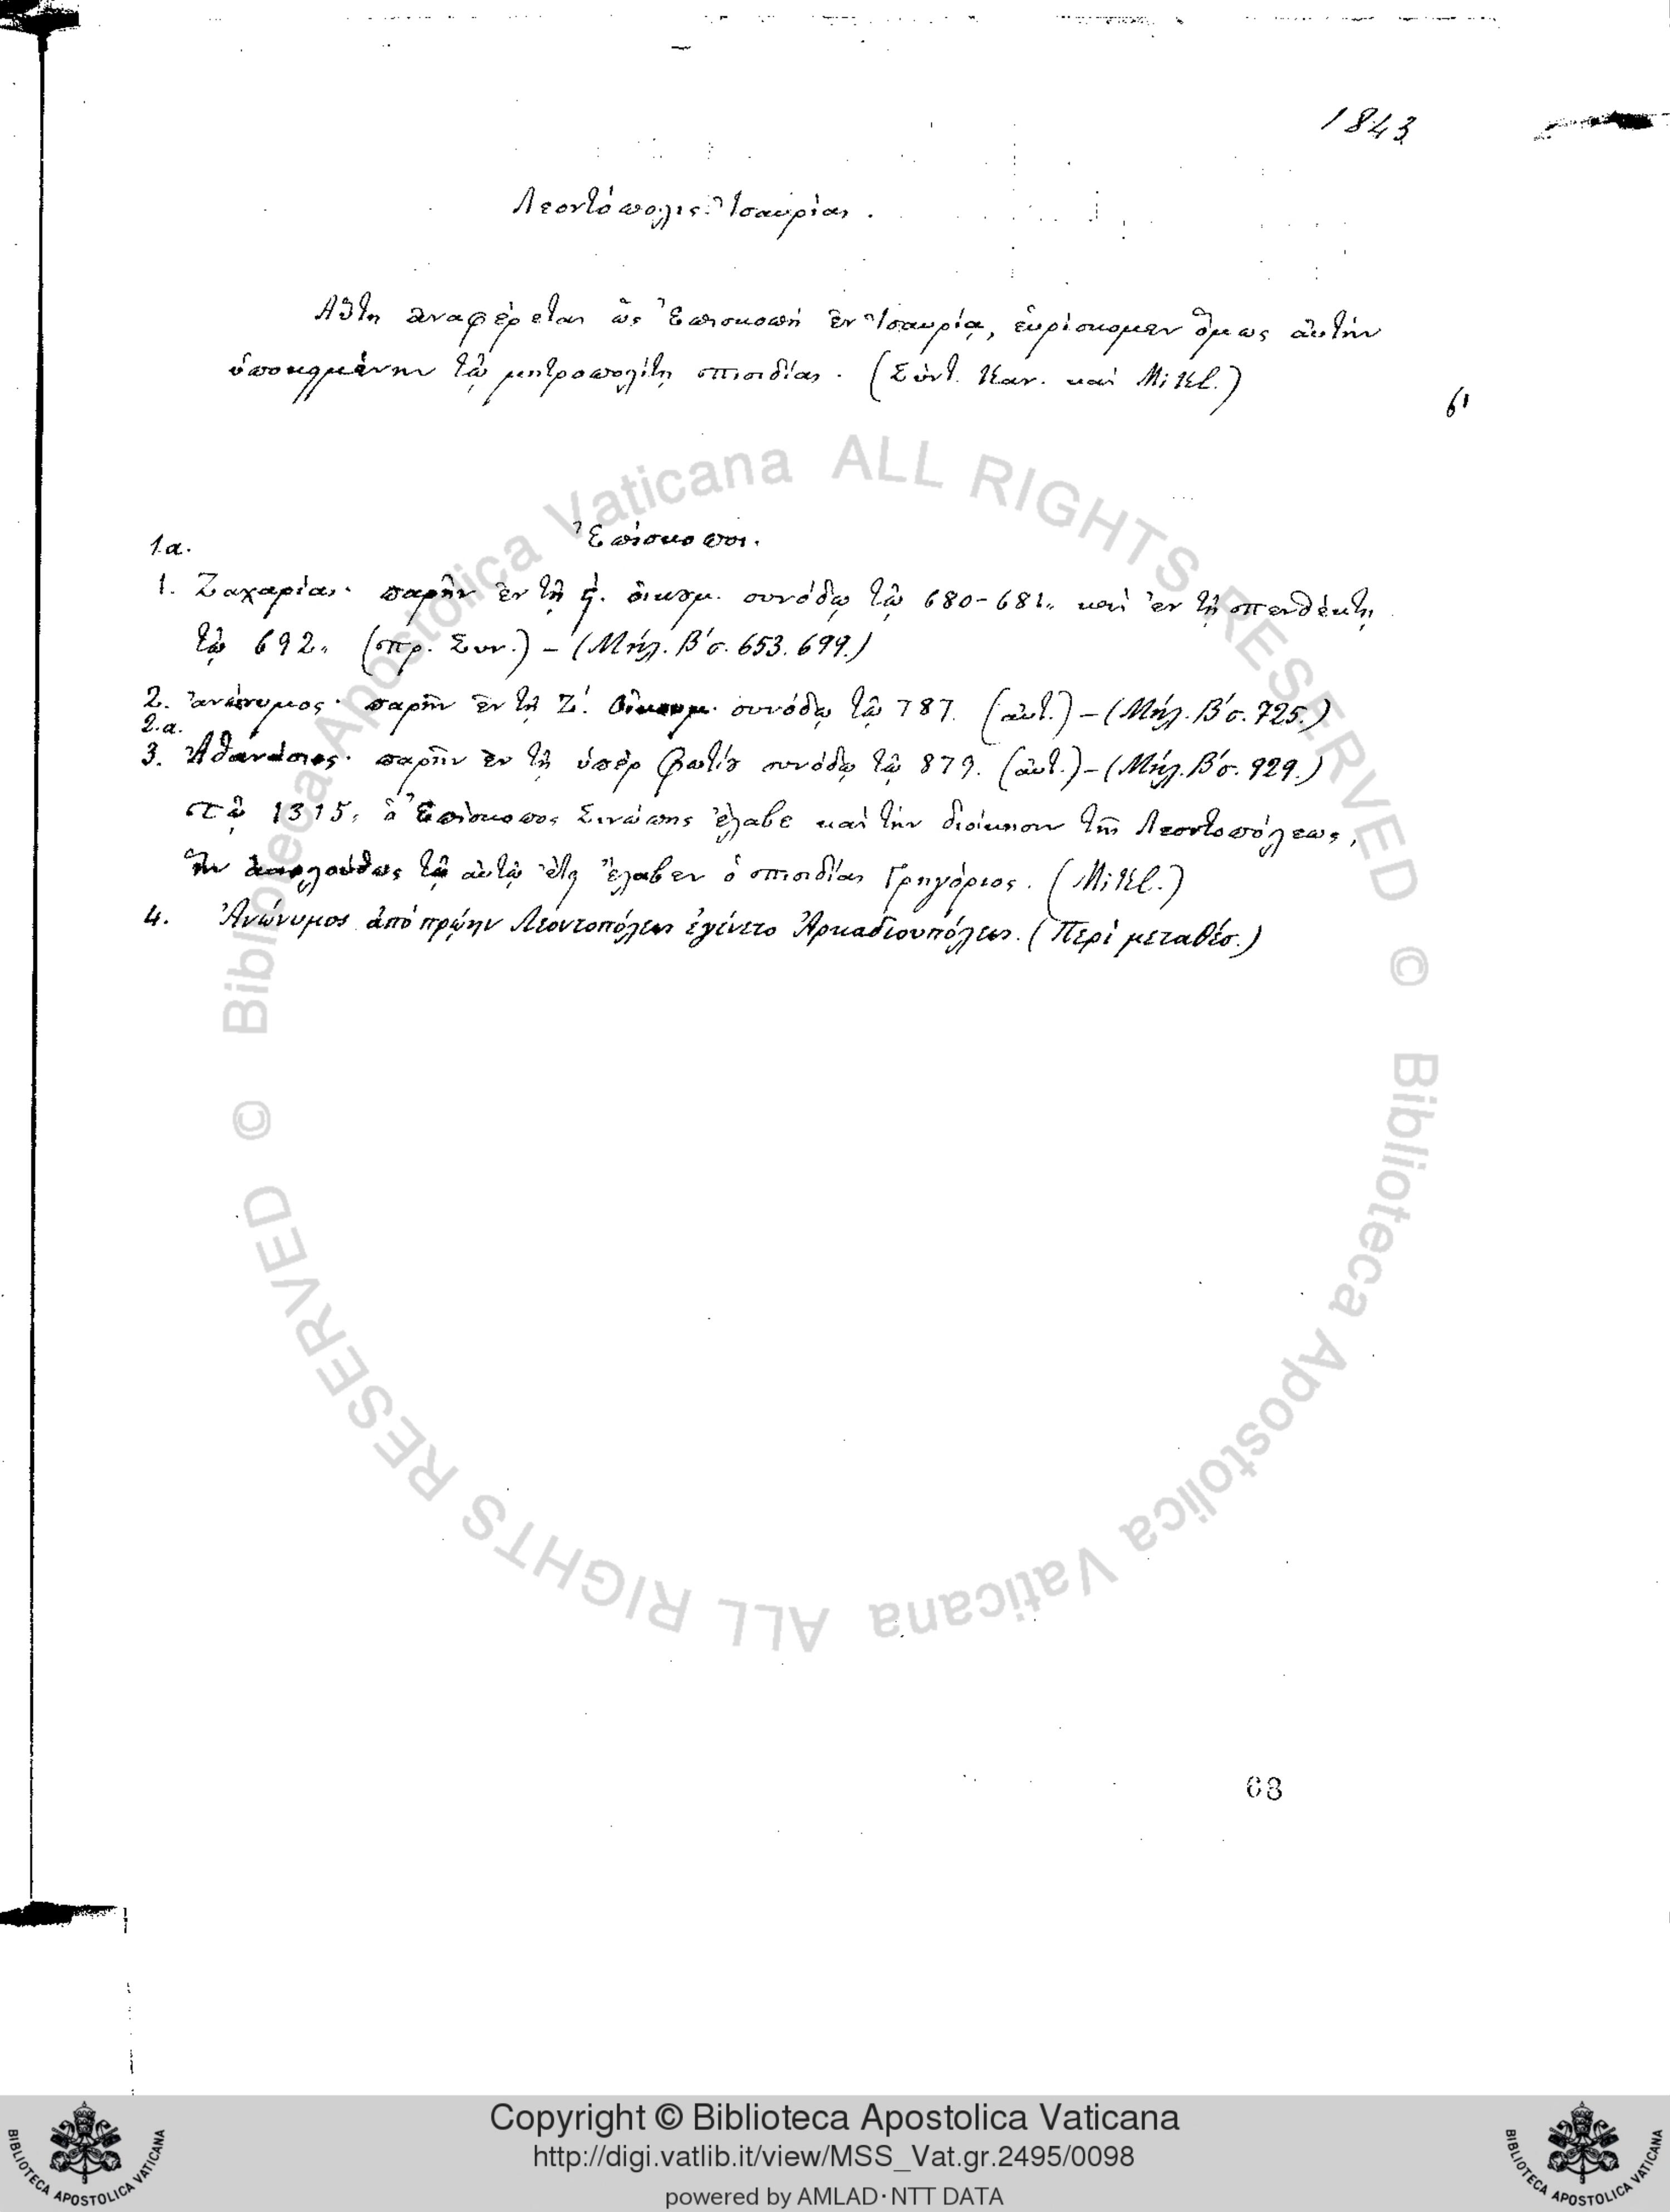 1843
Λεοντόπολις Ἰσαυρίας.
Αὕτη ἀναφέρεται ὡς Ἐπισκοπὴ ἐν Ἰσαυρίᾳ, εὑρίσκομεν ὅμως αὐτὴν
ὑποκειμένην τῷ μητροπολίτῃ Πισιδίας. (Σύντ. Καν. καὶ Mikl.)
Ἐπίσκοποι.
1α.
1. Ζαχαρίας· παρῆν ἐν τῇ ϛ΄. οἰκουμ. συνόδῳ τῷ 680-681. καὶ ἐν τῇ Πενθέκτῃ
τῷ 692. (Πρ. Συν.) – (Μήλ. Β΄ σ. 653. 699.)
2. ἀνώνυμος· παρῆν ἐν τῇ Ζ΄. Οἰκουμ. συνόδῳ τῷ 787. (αὐτ.) – (Μήλ. Β΄ σ. 725.)
2.α.
3. Ἀθανάσιος· παρῆν ἐν τῇ ὑπὲρ Φωτίου συνόδῳ τῷ 879. (αὐτ.) – (Μήλ. Β΄ σ. 929.)
Τῷ 1315, ὁ Ἐπίσκοπος Σινώπης ἔλαβε καὶ τὴν διοίκησιν τῆς Λεοντοπόλεως,
ἣν ἀκολούθως τῷ αὐτῷ ἔτει ἔλαβεν ὁ Πισιδίας Γρηγόριος. (Mikl.)
4. Ἀνώνυμος ἀπὸ πρῴην Λεοντοπόλεως ἐγένετο Ἀρκαδιουπόλεως. (Περὶ μεταθέσ.)
68
© Biblioteca Apostolica Vaticana ALL RIGHTS RESERVED
© Biblioteca Apostolica Vaticana ALL RIGHTS RESERVED
Copyright © Biblioteca Apostolica Vaticana
http://digi.vatlib.it/view/MSS_Vat.gr.2495/0098
powered by AMLAD·NTT DATA
BIBLIOTECA APOSTOLICA VATICANA
BIBLIOTECA APOSTOLICA VATICANA